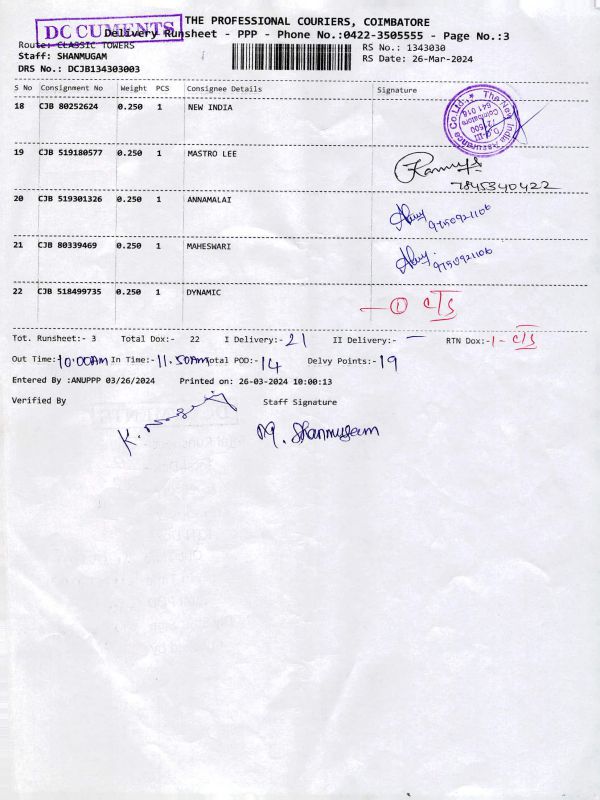 THE PROFESSIONAL COURIERS, COIMBATORE
DOCUMENTS
Delivery Runsheet - PPP - Phone No.:0422-3505555 - Page No.:3
Route: CLASSIC TOWERS
RS No.: 1343030
Staff: SHANMUGAM
RS Date: 26-Mar-2024
DRS No.: DCJB134303003
S No Consignment No Weight PCS Consignee Details Signature
18 CJB 80252624 0.250 1 NEW INDIA
The New India Assurance Co.Ltd.,
Coimbatore
641 018
19 CJB 519180577 0.250 1 MASTRO LEE
7845340422
20 CJB 519301326 0.250 1 ANNAMALAI
9750921106
21 CJB 80339469 0.250 1 MAHESWARI
9750921106
22 CJB 518499735 0.250 1 DYNAMIC — 1 C/S
Tot. Runsheet:- 3 Total Dox:- 22 I Delivery:- 21 II Delivery:- — RTN Dox:- 1 - C/S
Out Time:- 10:00AM In Time:- 11.50AM Total POD:- 14 Delvy Points:- 19
Entered By :ANUPPP 03/26/2024 Printed on: 26-03-2024 10:00:13
Verified By Staff Signature
Shanmugam